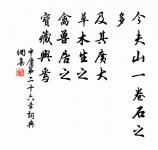 今夫山一卷石之
多
及其廣大
草木生之
禽獸居之
寶藏興焉
中庸第二十六章詞典
網集